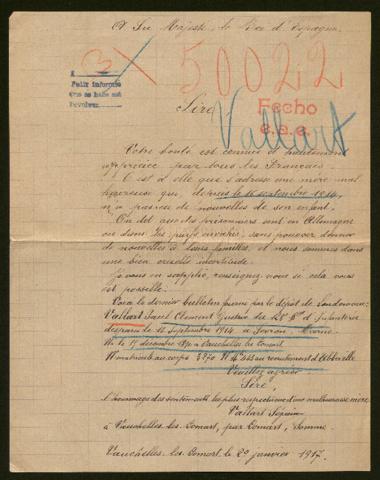 A Sa Majesté le Roi d'Espagne
3 X 50022
Sire,
Fecho
Vallart
Votre bonté est connue et hautement
appréciée par tous les Français.
C'est à elle que s'adresse une mère mal
heureuse qui depuis le 16 septembre 1914,
n'a pas reçu de nouvelles de son enfant.
On dit que des prisonniers sont en Allemagne
ou dans les pays envahis, sans pouvoir donner
de nouvelles à leurs familles, et nous sommes dans
une bien cruelle incertitude.
Je vous en supplie, renseignez nous si cela vous
est possible.
Voici le dernier bulletin fourni par le dépôt de Landerneau:
Vallart Clément Gustave du 128e Rt d'Infanterie
disparu le 15 Septembre 1914 à Marne
Né le 17 décembre à Vauchelles les Domart
Nº matricule au corps Nº au recrutement d'Abbeville
Veuillez agréer
Sire,
l'hommage des sentiments les plus respectueux d'une malheureuse mère.
Vallart
à Vauchelles-les-Domart, par Domart, Somme.
Vauchelles-les-Domart le 20 janvier 1917.